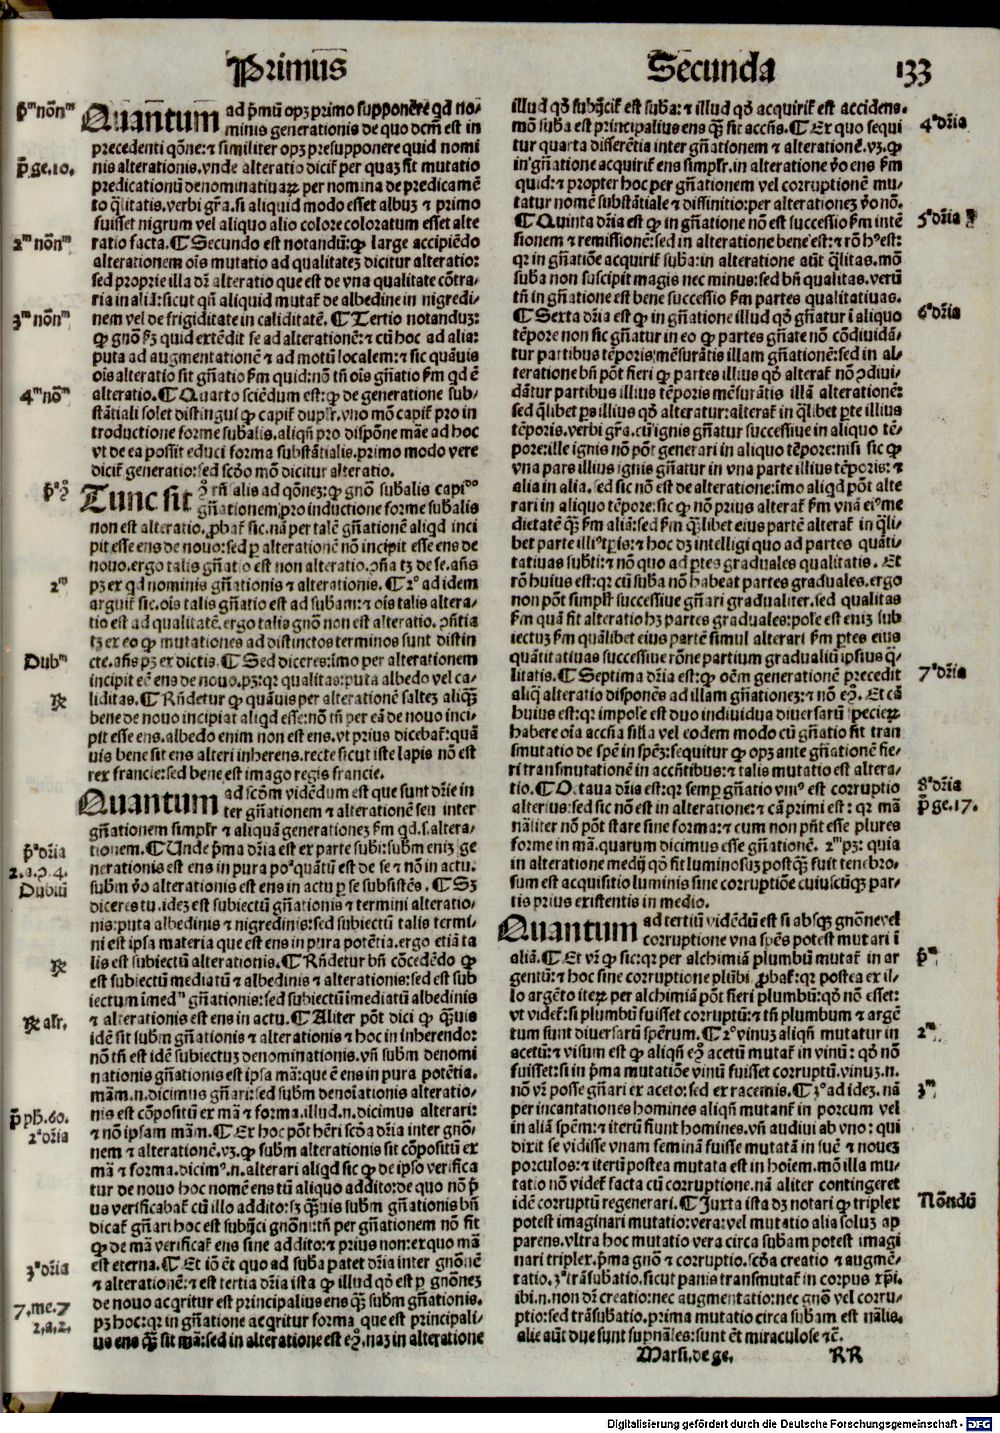 Primus
Secunda
133
p̄ᵐ nōnᵐ
p̄ ge.10.
2ᵐ nōnᵐ
3ᵐ nōnᵐ
4ᵐ nōᵐ
2ᵐ
Dubᵐ
℞
Quantum ad p̄mū opʒ primo supponere qd no/
minis generationis de quo dcm̄ est in
precedenti qōne: ⁊ similiter opʒ presupponere quid nomi
nis alterationis. vnde alteratio dicit̄ per quaʒ fit mutatio
predicationū denominatiuaꝝ per nomina de predicamē
to q̄litatis. verbi gr̄a. si aliquid modo esset albuʒ ⁊ primo
fuisset nigrum vel aliquo alio colore coloratum esset alte
ratio facta. ¶ Secundo est notandū: ꝙ large accipiēdo
alterationem oīs mutatio ad qualitateʒ dicitur alteratio:
sed proprie illa dr̄ alteratio que est de vna qualitate cōtra/
ria in aliā: sicut qn̄ aliquid mutat̄ de albedine in nigredi/
nem vel de frigiditate in caliditatē. ¶ Tertio notanduʒ:
ꝙ gnō ẜʒ quid extēdit se ad alterationē: ⁊ cū hoc ad alia:
puta ad augmentationē ⁊ ad motū localem: ⁊ sic quāuis
oīs alteratio sit gn̄atio ẜm quid: nō tn̄ oīs gn̄atio ẜm qd ē
alteratio. ¶ Quarto sciēdum est: ꝙ de generatione sub/
stātiali solet distingui ꝙ capit̄ duplr̄. vno mō capit̄ pro in
troductione forme subalis. aliqn̄ pro dispōne māe ad hoc
vt de ea possit educi forma substātialis. primo modo vere
dicit̄ generatio: sed scd̄o mō dicitur alteratio.
Tunc sit rn̄ alis ad qōneʒ: ꝙ gnō subalis
gn̄ationem pro inductione forme subalis
non est alteratio. ꝓbat̄ sic. nā per talē gn̄ationē aliqd inci
pit esse ens de nouo: sed ꝑ alterationē nō incipit esse ens de
nouo. ergo talis gn̄atio est non alteratio. ꝯn̄a tʒ de se. an̄s
pʒ ex qd nominis gn̄ationis ⁊ alterationis. ¶ 2° ad idem
arguit̄ sic. oīs talis gn̄atio est ad subam: ⁊ oīs talis altera/
tio est ad qualitatē. ergo talis gnō non est alteratio. ꝯn̄tia
tʒ ex eo ꝙ mutationes ad distinctos terminos sunt distin
cte. an̄s pʒ ex dictis. ¶ Sed diceres: īmo per alterationem
incipit eē ens de nouo. pʒ: qꝛ qualitas: puta albedo vel ca/
liditas. ¶ Rn̄detur ꝙ quāuis per alterationē salteʒ aliqʒ
bene de nouo incipiat aliqd esse: nō tn̄ per eā de nouo inci/
pit esse ens. albedo enim non est ens. vt prius dicebat̄: quā
uis bene sit ens alteri inherens. recte sicut iste lapis nō est
rex francie: sed bene est imago regis francie.
Quantum ad scd̄m vidēdum est que sunt dr̄ie in
ter gn̄ationem ⁊ alterationē seu inter
gn̄ationem simplr̄ ⁊ aliquā generationeʒ ẜm qd. s. altera/
tionem. ¶ Unde p̄ma dr̄ia est ex parte subi: subm eniʒ ge
nerationis est ens in pura poᵃ quātū est de se ⁊ nō in actu.
subm v̄o alterationis est ens in actu ꝑ se subsistēs. ¶ Sʒ
diceres tu. ideʒ est subiectū gn̄ationis ⁊ termini alteratio/
nis: puta albedinis ⁊ nigredinis: sed subiectū talis termi/
ni est ipsa materia que est ens in pura potētia. ergo etiā ta
lis est subiectū alterationis. ¶ Rn̄detur bn̄ cōcedēdo ꝙ
est subiectū mediatū ⁊ albedinis ⁊ alterationis: sed est sub
iectum īmedᵐ gn̄ationis: sed subiectū īmediatū albedinis
⁊ alterationis est ens in actu. ¶ Aliter pōt dici ꝙ q̄uis
idē sit subm gn̄ationis ⁊ alterationis ⁊ hoc in inherendo:
nō tn̄ est idē subiectuʒ denominationis. vn̄ subm denomi
nationis gn̄ationis est ipsa mā: que ē ens in pura potētia.
mām. n. dicimus gn̄ari: sed subm denoīationis alteratio/
nis est cōpositū ex mā ⁊ forma. illud. n. dicimus alterari:
⁊ nō ipsam mām. ¶ Ex hoc pōt hēri scd̄a dr̄ia inter gnō/
nem ⁊ alterationē. vʒ. ꝙ subm alterationis sit cōpositū ex
mā ⁊ forma. dicimꝰ. n. alterari aliqd sic ꝙ de ipso verifica
tur de nouo hoc nomē ens tū aliquo addito: de quo nō p̄
us verificabat̄ cū illo addito: sʒ q̄uis subm gn̄ationis bn̄
dicat̄ gn̄ari hoc est subijci gnōni: tn̄ per gn̄ationem nō fit
ꝙ de mā verificat̄ ens sine addito: ⁊ prius non: ex quo mā
est eterna. ¶ Et iō ēt quo ad suba patet dr̄ia inter gnōnē
⁊ alterationē: ⁊ est tertia dr̄ia ista ꝙ illud qd est ꝑ gnōneʒ
de nouo acqritur est principalius ens q̄ʒ subm gn̄ationis.
pʒ hoc: qꝛ in gn̄atione acqritur forma que est principali/
us ens q̄ʒ sit mā: sed in alteratione est eꝯ. naʒ in alteratione
p̄ᵃ dr̄ia
2. a. 2. 4.
Dubiū
℞
℞ alr̄.
p̄ ph. 60.
2ᵃ dr̄ia
3ᵃ dr̄ia
7. me. 7
2. a. 2.
illud qd subijcit̄ est suba: ⁊ illud qd acquirit̄ est accidens.
mō suba est principalius ens q̄ʒ sit accn̄s. ¶ Ex quo sequi
tur quarta differētia inter gn̄ationem ⁊ alterationē. vʒ. ꝙ
in gn̄atione acquirit̄ ens simplr̄. in alteratione v̄o ens ẜm
quid: ⁊ propter hoc per gn̄ationem vel corruptionē mu/
tatur nomē substātiale ⁊ diffinitio: per alterationeʒ v̄o nō.
¶ Quinta dr̄ia est ꝙ in gn̄atione nō est successio ẜm intē
sionem ⁊ remissionē: sed in alteratione bene est: ⁊ rō hꝰ est:
qꝛ in gn̄atiōe acquirit̄ suba: in alteratione aūt q̄litas. mō
suba non suscipit magis nec minus: sed bn̄ qualitas. verū
tn̄ in gn̄atione est bene successio ẜm partes qualitatiuas.
¶ Sexta dr̄ia est ꝙ in gn̄atione illud qd gn̄atur ī aliquo
tēpore non sic gn̄atur in eo ꝙ partes gn̄ate nō cōdiuidā/
tur partibus tēporis mēsurātis illam gn̄ationē: sed in al/
teratione bn̄ pōt fieri ꝙ partes illius qd alterat̄ nō ꝯdiui/
dātur partibus illius tēporis mēsurātis illā alterationē:
sed q̄libet ps illius qd alteratur: alterat̄ in q̄libet ꝑte illius
tēporis. verbi gr̄a. cū ignis gn̄atur successiue in aliquo tē/
pore: ille ignis nō pōt generari in aliquo tēpore: nisi sic ꝙ
vna pars illius ignis gn̄atur in vna parte illius tēporis: ⁊
alia in alia. sed sic nō est de alteratione: īmo aliqd pōt alte
rari in aliquo tēpore: sic ꝙ nō prius alterat̄ ẜm vnā eiꝰ me
dietatē q̄ʒ ẜm aliā: sed ẜm q̄libet eius partē alterat̄ in q̄li/
bet parte illiꝰ tꝑis: ⁊ hoc dʒ intelligi quo ad partes quāti/
tatiuas subti: ⁊ nō quo ad ꝑtes graduales qualitatis. Et
rō huius est: qꝛ cū suba nō habeat partes graduales. ergo
non pōt simplr̄ successiue gn̄ari gradualiter. sed qualitas
ẜm quā fit alteratio hʒ partes graduales: pōse est eniʒ sub
iectuʒ ẜm quālibet eius partē simul alterari ẜm ꝑtes eius
quātitatiuas successiue rōne partium gradualiū ipsius q̄/
litatis. ¶ Septima dr̄ia est: ꝙ oēm generationē precedit
aliq̄ alteratio disponēs ad illam gn̄ationeʒ: ⁊ nō eꝯ. Et cā
huius est: qꝛ impōse est duo indiuidua diuersarū specieꝝ
habere oīa accn̄a silia vel eodem modo cū gn̄atio fit tran
smutatio de spē in spēʒ: sequitur ꝙ opʒ ante gn̄ationē fie/
ri transmutationē in accn̄tibus: ⁊ talis mutatio est altera/
tio. ¶ Octaua dr̄ia est: qꝛ semꝑ gn̄atio vniꝰ est corruptio
alterius: sed sic nō est in alteratione: ⁊ cā primi est: qꝛ mā
nāliter nō pōt stare sine forma: ⁊ cum non pn̄t esse plures
forme in mā. quarum dicimus esse gn̄ationē. 2ᵐ pʒ: quia
in alteratione medij qō fit luminosuʒ postq̄ʒ fuit tenebro/
sum est acquisitio luminis sine corruptiōe cuiuscūqʒ par/
tis prius existentis in medio.
Quantum ad tertiū vidēdū est si absqʒ gnōne vel
corruptione vna spēs potest mutari ī
aliā. ¶ Et vr̄ ꝙ sic: qꝛ per alchimiā plumbū mutat̄ in ar
gentū: ⁊ hoc sine corruptione plūbi ꝓbat̄: qꝛ postea ex il/
lo argēto iteꝝ per alchimiā pōt fieri plumbū: qd nō esset:
vt videt̄: si plumbū fuisset corruptū: ⁊ tn̄ plumbum ⁊ argē
tum sunt diuersarū spērum. ¶ 2° vinuʒ aliqn̄ mutatur in
acetū: ⁊ visum est ꝙ aliqn̄ eꝯ acetū mutat̄ in vinū: qd nō
fuisset: si in p̄ma mutatiōe vinū fuisset corruptū. vinuʒ. n.
nō vr̄ posse gn̄ari ex aceto: sed ex racemis. ¶ 3° ad ideʒ. nā
per incantationes homines aliqn̄ mutant̄ in porcum vel
in aliā spēm: ⁊ iterū fiunt homines. vn̄ audiui ab vno: qui
dixit se vidisse vnam feminā fuisse mutatā in suē ⁊ noueʒ
porculos: ⁊ iterū postea mutata est in hoiem. mō illa mu/
tatio nō videt̄ facta cū corruptione. nā aliter contingeret
idē corruptū regenerari. ¶ Juxta ista dʒ notari ꝙ triplex
potest imaginari mutatio: vera: vel mutatio alia soluʒ ap
parens. vltra hoc mutatio vera circa subam potest imagi
nari triplex. p̄ma gnō ⁊ corruptio. scd̄a creatio ⁊ augmē/
tatio. 3ᵃ trāsubatio. sicut panis transmutat̄ in corpus xp̄i.
ibi. n. non dr̄ creatio: nec augmentatio: nec gnō vel corru/
ptio: sed trāsubatio. prima mutatio circa subam est nālis.
alie aūt due sunt supnāles: sunt ēt miraculose ⁊c̄.
Marsi. de ge.
RR
4ᵃ dr̄ia
5ᵃ dr̄ia
6ᵃ dr̄ia
7ᵃ dr̄ia
8ᵃ dr̄ia
p̄ ge. 17.
p̄ᵐ
2ᵐ
3ᵐ
Nōndū
Digitalisierung gefördert durch die Deutsche Forschungsgemeinschaft - DFG